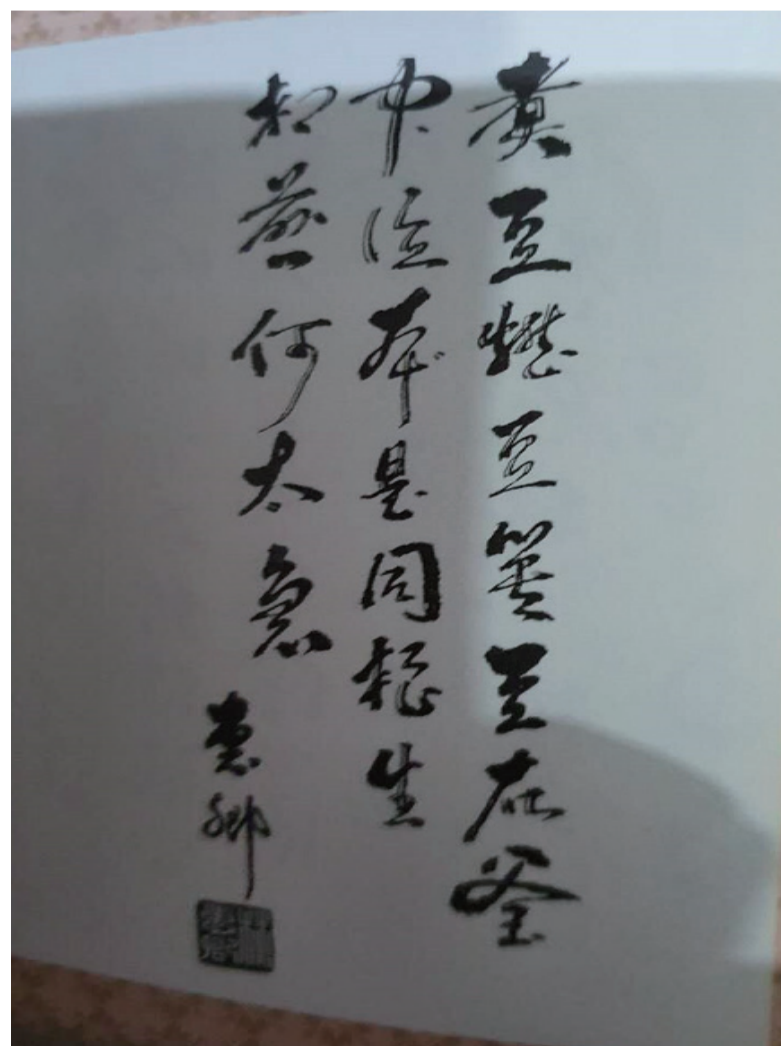 煮豆燃豆萁豆在釜
中泣本是同根生
相煎何太急
惠鄉